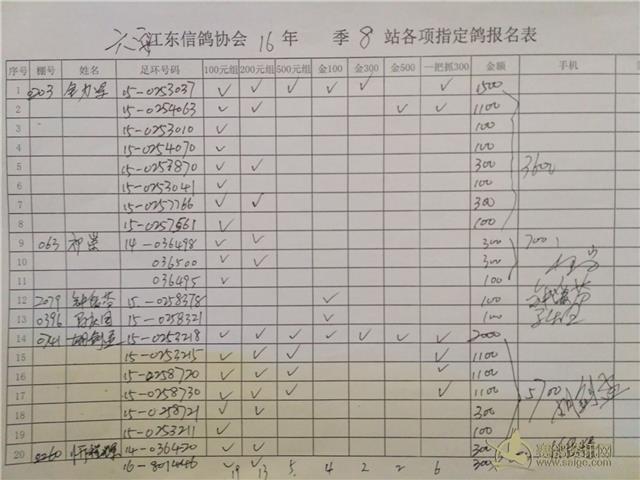 江东信鸽协会 16年 季 8 站各项指定鸽报名表
序号 棚号 姓名 足环号码 100元组 200元组 500元组 金100 金300 金500 一把抓300 金额 手机
1 0203 15-0253037 ✓ ✓ ✓ ✓ ✓ ✓ 1500
2 15-0254063 ✓ ✓ ✓ ✓ 1100
3 15-0253010 ✓ 100
4 15-0254070 ✓ 100
5 15-0253870 ✓ ✓ 300 3600
6 15-0253041 ✓ 100
7 15-0257766 ✓ ✓ 300
8 15-0257561 ✓ 100
9 063 14-036498 ✓ ✓ 300 700
10 036500 ✓ ✓ 300
11 036495 ✓ 100
12 2079 15-0258378 ✓ 100
13 0396 15-0258321 ✓ 100
14 0741 15-0253218 ✓ ✓ ✓ ✓ ✓ ✓ ✓ 2000
15 15-0253215 ✓ ✓ ✓ ✓ 1100
16 15-0258720 ✓ ✓ ✓ ✓ 1100
17 15-0258730 ✓ ✓ ✓ ✓ 1100 5700
18 15-0258721 ✓ ✓ 300
19 15-0253211 ✓ 100
20 0260 14-036420 ✓ ✓ 300
✓ ✓ 19 13 5 4 2 2 6 300
www.saige.com